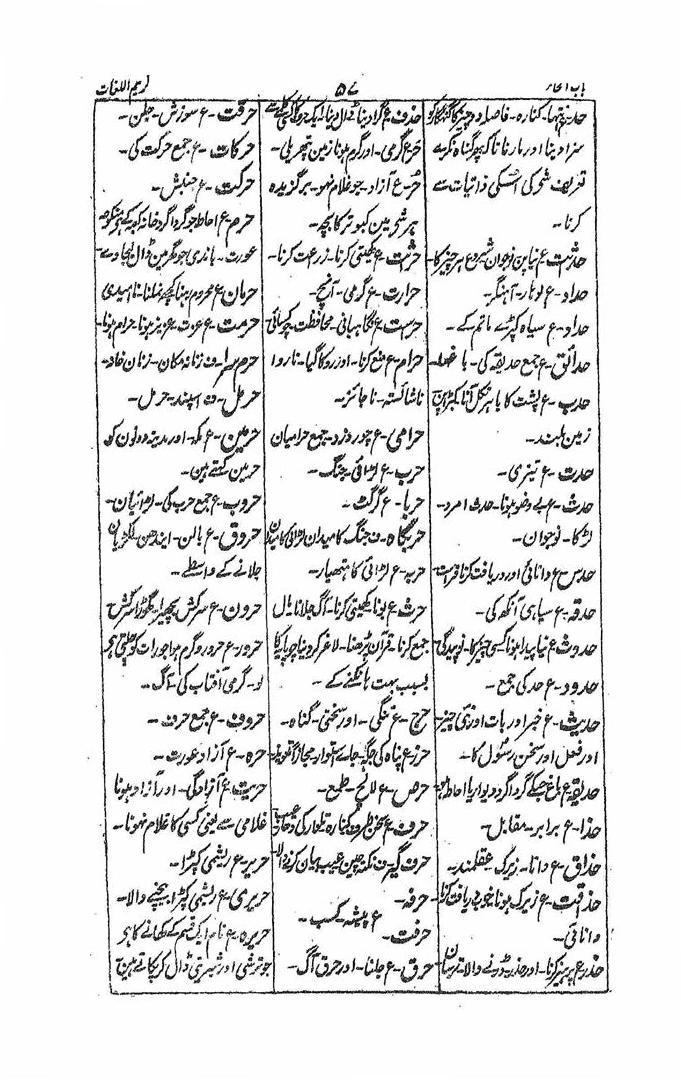 باب الحاء
۵۷
کریم اللغات
حد۔ ع انتہا۔ کنارہ۔ فاصلہ دو چیز کا گنہگار کو
سزا دینا اور مارنا تاکہ پھر گناہ نکرے
تعریف شئ کی اسکی ذاتیات سے
کرنا۔
حداثت۔ ع نیا پن نوجوان شروع ہر چیز کا۔
حداد۔ ع لوہار۔ آہنگر۔
حداد۔ ع سیاہ کپڑے ماتم کے۔
حدائق۔ ع جمع حدیقہ کی۔ باغہا۔
حدب۔ ع پشت کا باہر نکل آنا کبڑا پن
زمین بلند۔
حدت۔ ع تیزی۔
حدث۔ ع بے وضو ہونا۔ حدث امرد۔
لڑکا۔ نوجوان۔
حدس۔ ع دانائی اور دریافت کرنا فراست
حدقہ۔ ع سیاہی آنکھ کی۔
حدوث۔ ع نیا پیدا ہونا کسی چیز کا۔ نوپیدگی
حدود۔ ع حد کی جمع۔
حدیث۔ ع خبر اور بات اور نئی چیز۔
اور فعل اور سخن رسول کا۔
حدیقہ۔ ع باغ جسکے گرداگرد دیوار یا احاطہ ہو
حذا۔ ع برابر۔ مقابل۔
حذاق۔ ع دانا۔ زیرک۔ عقلمند۔
حذاقت۔ ع زیرک ہونا خوب دریافت کرنا
دانائی۔
حذر۔ ع پرہیز کرنا۔ اور حذر۔ ڈرنے والا ترسان
حذف۔ ع گرا دینا ڈال دینا۔ ایک حرف کا کلمے سے
حر۔ ع گرمی۔ اور گرم ہونا زمین پتھریلی۔
حُر۔ ع آزاد۔ جو غلام نہو۔ برگزیدہ
ہر شئ مین کبوتر کا بچہ۔
حراثت۔ ع کھیتی کرنا۔ زراعت کرنا۔
حرارت۔ ع گرمی۔ آنچ۔
حراست۔ ع نگاہبانی۔ محافظت چوکسائی
حرام۔ ع منع کرنا۔ اور روکا گیا۔ ناروا
ناشائستہ۔ ناجائز۔
حرامی۔ ع چور و دزد۔ جمع حرامیان
حرب۔ ع لڑائی۔ جنگ۔
حربا۔ ع گرگٹ۔
حربگاہ۔ ف جنگ کا میدان لڑائی کا میدان
حربہ۔ ع لڑائی کا ہتھیار۔
حرث۔ ع بونا کھیتی کرنا۔ آگ جلانا مال
جمع کرنا۔ قرآن پڑھنا۔ لاغر کر دینا چوپایہ کا
بسبب بہت ہانکنے کے۔
حرج۔ ع تنگی۔ اور سختی۔ گناہ۔
حرز۔ ع پناہ کی جگہ۔ جائے استوار۔ مجازاً تعویذ
حرص۔ ع لالچ۔ طمع۔
حرف۔ ع سخن طرف کنارہ تلوار کی دھار عیب
حرف گیر۔ ف نکتہ چین عیب بیان کرنے والا
حرفہ۔
ع پیشہ۔ کسب۔
حرفت۔
حرق۔ ع جلنا۔ اور حرق آگ۔
حرقت۔ ع سوزش۔ جلن۔
حرکات۔ ع جمع حرکت کی۔
حرکت۔ ع جنبش۔
حرم۔ ع احاطہ جو گرداگرد خانہ کعبہ کے ہی منکوحہ
عورت۔ باندی جو گھر مین ڈال لیجاوے۔
حرمان۔ ع محروم رہنا کچھ نملنا۔ ناامیدی
حرمت۔ ع عزت۔ عزیز ہونا۔ حرام ہونا۔
حرم سرا۔ ف زنانہ مکان۔ زنان خانہ۔
حرمل۔ دہ اسپند۔ حرمل۔
حرمین۔ ع مکہ۔ اور مدینہ دونون کو
حرمین کہتے ہین۔
حروب۔ ع جمع حرب کی۔ لڑائیان۔
حروق۔ ع بالن۔ ایندھن لکڑیان
جلانے کے واسطے۔
حرون۔ ع سرکش بچھیرا۔ گھوڑا سرکش
حرور۔ ع حرور و گرم ہوا جو رات کو چلتی ہی
لو۔ گرمی آفتاب کی۔ آگ۔
حروف۔ ع جمع حرف۔
حرہ۔ ع آزاد عورت۔
حریت۔ ع آزادگی۔ اور آزاد ہونا
غلامی سے یعنی کسی کا غلام نہونا۔
حریر۔ ع ریشمی کپڑا۔
حریری۔ ع ریشمی کپڑا بیچنے والا۔
حریرہ۔ ع نام ایک قسم کے کھانے کا ہی
جو ترشی اور شیرینی ڈال کر پکاتے ہین